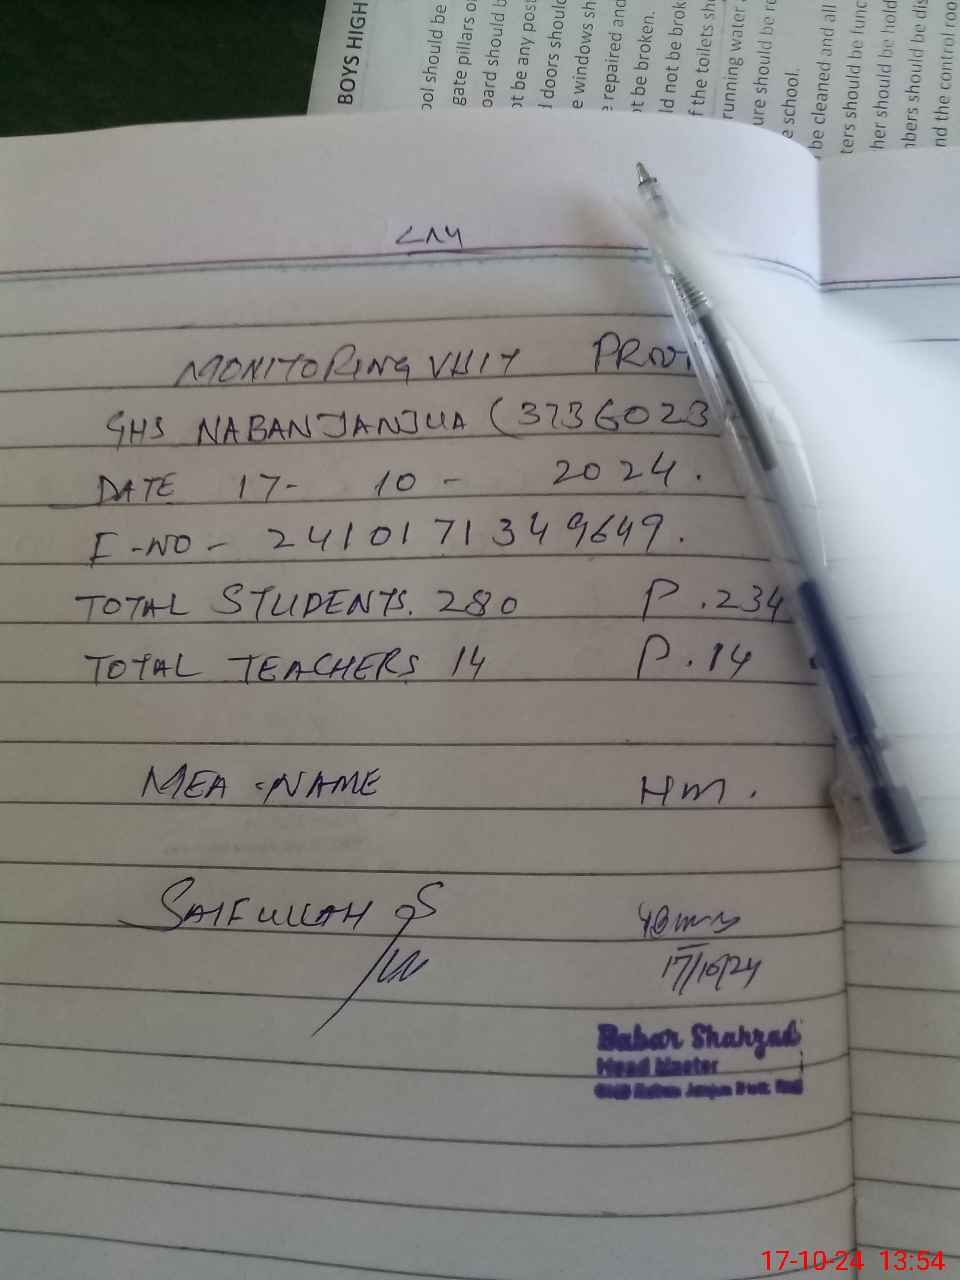 BOYS HIGH
ool should be
gate pillars o
oard should b
ot be any post
d doors shoul
e windows sh
e repaired and
ot be broken.
ld not be brok
f the toilets sh
running water
ure should be re
e school.
be cleaned and all
ters should be func
her should be hold
nbers should be dis
nd the control roo
MONITORING VISIT PRNT
GHS NABANJANJUA (3736023
DATE 17- 10 - 2024.
I-NO - 2410171349649.
TOTAL STUDENTS. 280 P.234
TOTAL TEACHERS 14 P.14
MEA -NAME HM.
SAIFULLAH
17/10/24
Babar Shahzad
Head Master
17-10-24 13:54